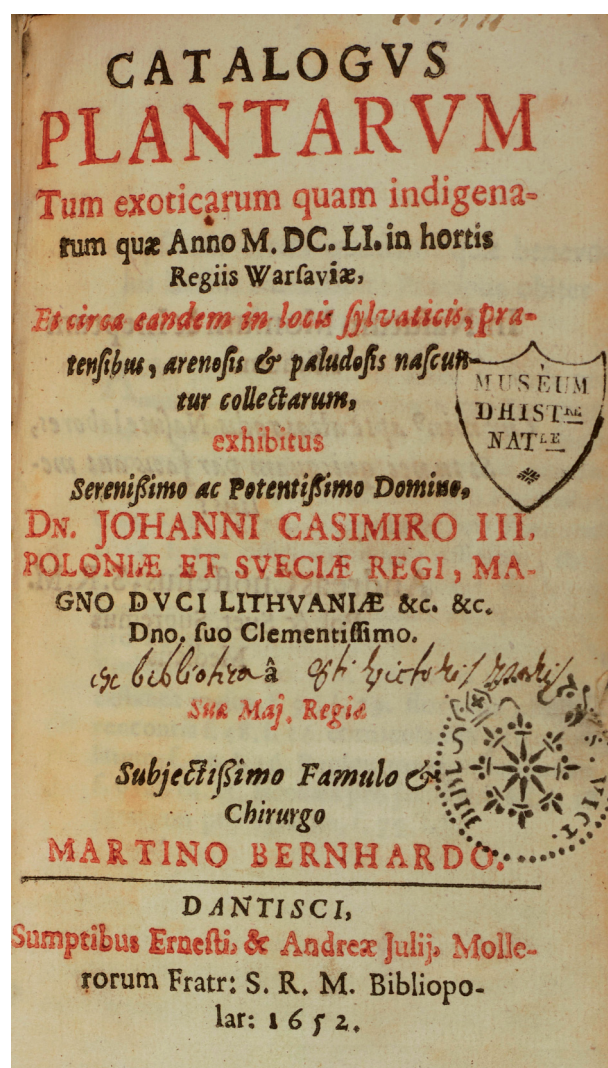 CATALOGVS
PLANTARVM
Tum exoticarum quam indigena-
rum quæ Anno M. DC. LI. in hortis
Regiis Warſaviæ,
Et circa eandem in locis ſylvaticis, pra-
tenſibus, arenoſis & paludoſis naſcun-
tur collectarum,
exhibitus
Sereniſſimo ac Potentiſſimo Domino,
DN. JOHANNI CASIMIRO III.
POLONIÆ ET SVECIÆ REGI, MA-
GNO DVCI LITHVANIÆ &c. &c.
Dno. ſuo Clementiſſimo.
ex bibliotheca â Sti victoris
Suæ Maj. Regiæ
Subjectiſſimo Famulo &
Chirurgo
MARTINO BERNHARDO.
DANTISCI,
Sumptibus Erneſti, & Andreæ Julij, Molle-
rorum Fratr: S. R. M. Bibliopo-
lar: 1652.
MUSÉUM
DHIST.RE
NAT.LE
BIBL. S. VICT.